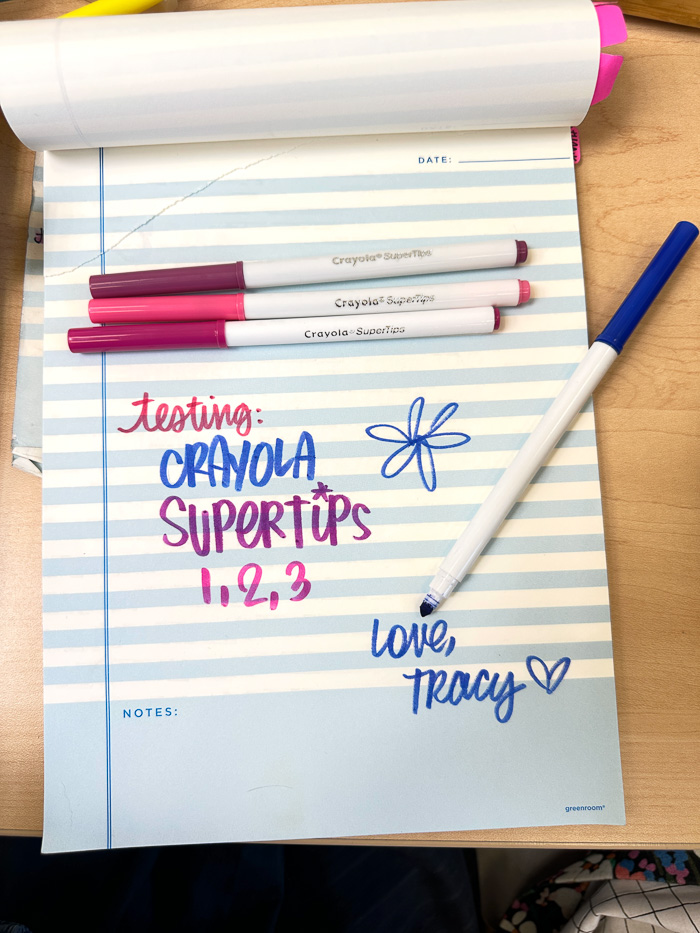 DATE:
Crayola® SuperTips
Crayola® SuperTips
Crayola® SuperTips
testing:
CRAYOLA
SUPERTiPS
1,2,3
LOVE,
TRACY
NOTES:
greenroom®